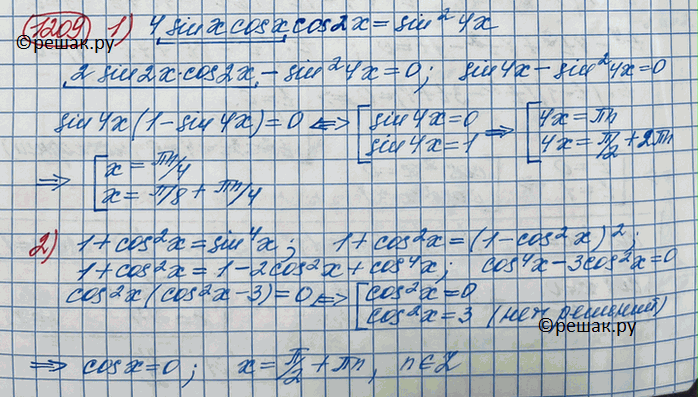 1209 1) 4 sin x cos x cos2x = sin²4x
©решак.ру
2 sin2x·cos2x - sin²4x = 0; sin4x - sin²4x = 0
sin4x(1 - sin4x) = 0 <=> [ sin4x = 0 => [ 4x = πn
sin4x = 1 4x = π/2 + 2πn
=> [ x = πn/4
x = π/8 + πn/4
2) 1 + cos²x = sin⁴x; 1 + cos²x = (1 - cos²x)²;
1 + cos²x = 1 - 2cos²x + cos⁴x; cos⁴x - 3cos²x = 0
cos²x(cos²x - 3) = 0 <=> [ cos²x = 0
cos²x = 3 (нет решений)
©решак.ру
=> cosx = 0; x = π/2 + πn, n∈Z